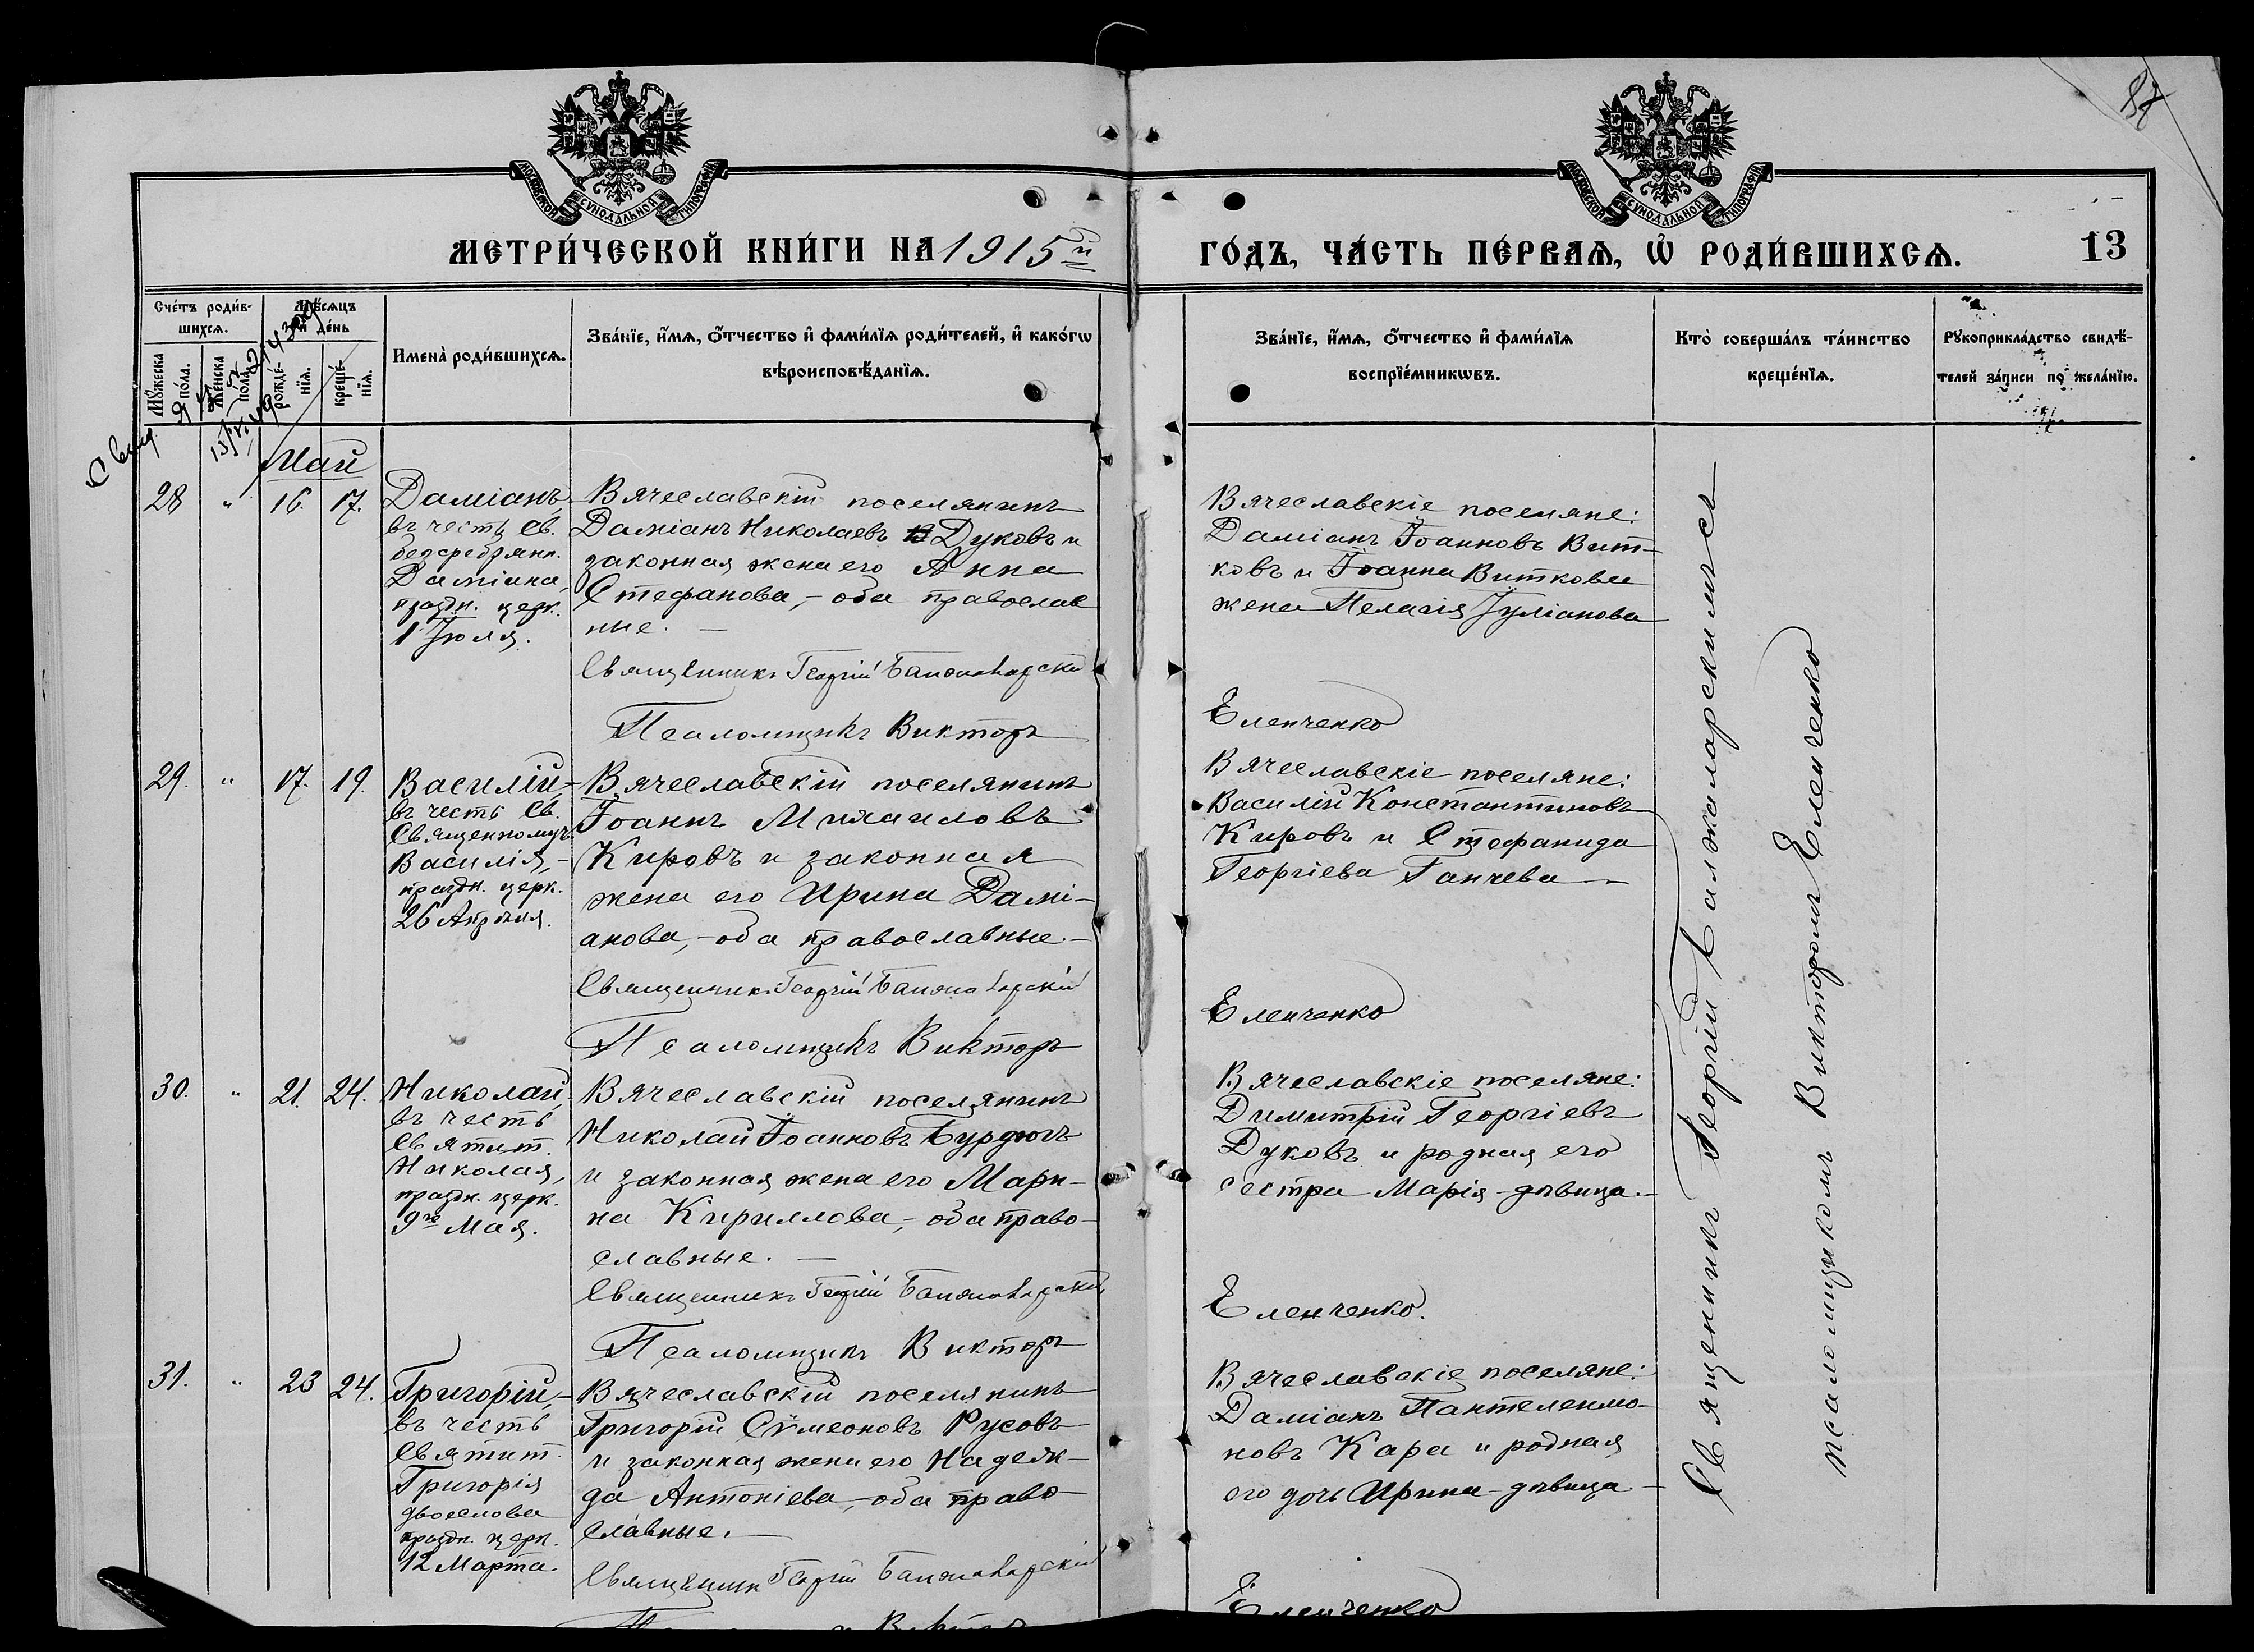 87
МОСКОВСКОЙ СѴНОДАЛЬНОЙ ТИПОГРАФІИ
МОСКОВСКОЙ СѴНОДАЛЬНОЙ ТИПОГРАФІИ
МЕТРИ́ЧЕСКОЙ КНИ́ГИ НА 1915й
ГО́ДЪ, ЧА́СТЬ ПЕ́РВАѦ, Ѡ҆ РОДИ́ВШИХСѦ.
13
Сче́тъ роди́в-
шихсѧ.
Мꙋ́жеска
по́ла.
Же́нска
по́ла.
Мѣ́сѧцъ
и҆ де́нь
рожде́-
нїѧ.
креще́-
нїѧ.
Имена̀ роди́вшихсѧ.
Зва́нїе, и҆́мѧ, ѻ҆́тчество и҆ фами́лїѧ роди́телей, и҆ како́гѡ
вѣроисповѣ́данїѧ.
Зва́нїе, и҆́мѧ, ѻ҆́тчество и҆ фами́лїѧ
воспрїе́мникѡвъ.
Кто̀ соверша́лъ та́инство
креще́нїѧ.
Рꙋкоприкла́дство свидѣ́-
телей за́писи по жела́нїю.
Май
28 " 16. 17.
Даміанъ,
въ честь Св.
безсребрянн.
Даміана,
праздн. церк.
1 Іюля.
Вячеславскій поселянинъ
Даміанъ Николаевъ Дуковъ и
законная жена его Анна
Стефанова, - оба православ
ные. -
Священникъ Георгій
Псаломщикъ Викторъ
Вячеславскіе поселяне:
Даміанъ Іоанновъ Вит-
ковъ и Іоанна Виткова
жена Пелагія Іуліанова
Еленченко
29. " 17. 19.
Василій -
въ честь Св.
Священномуч.
Василія, -
праздн. церк.
26 Апрѣля.
Вячеславскій поселянинъ
Іоаннъ Михаиловъ
Кировъ и законная
жена его Ирина Дамі-
анова, - оба православные. -
Священникъ Георгій
Псаломщикъ Викторъ
Вячеславскіе поселяне:
Василій Константиновъ
Кировъ и Стефанида
Георгіева Ганчева -
Еленченко
30. " 21. 24.
Николай,
въ честь
Святит.
Николая,
праздн. церк.
9го Мая.
Вячеславскій поселянинъ
Николай Іоанновъ Бурдюгъ
и законная жена его Мари-
на Кириллова, - оба право-
славные. -
Священникъ Георгій
Псаломщикъ Викторъ
Вячеславскіе поселяне:
Димитрій Георгіевъ
Дуковъ и родная его
сестра Марія - дѣвица. -
Еленченко.
31. " 23 24.
Григорій, -
въ честь
Святит.
Григорія
двоеслова
праздн. церк.
12 Марта.
Вячеславскій поселянинъ
Григорій Сѵмеоновъ Русовъ
и законная жена его Надеж-
да Антоніева, - оба право-
славные. -
Священникъ Георгій
Вячеславскіе поселяне:
Даміанъ Пантелеимо-
новъ Кара и родная
его дочь Ирина - дѣвица -
Еленченко
Священникъ Георгій
псаломщикомъ Викторомъ Еленченко